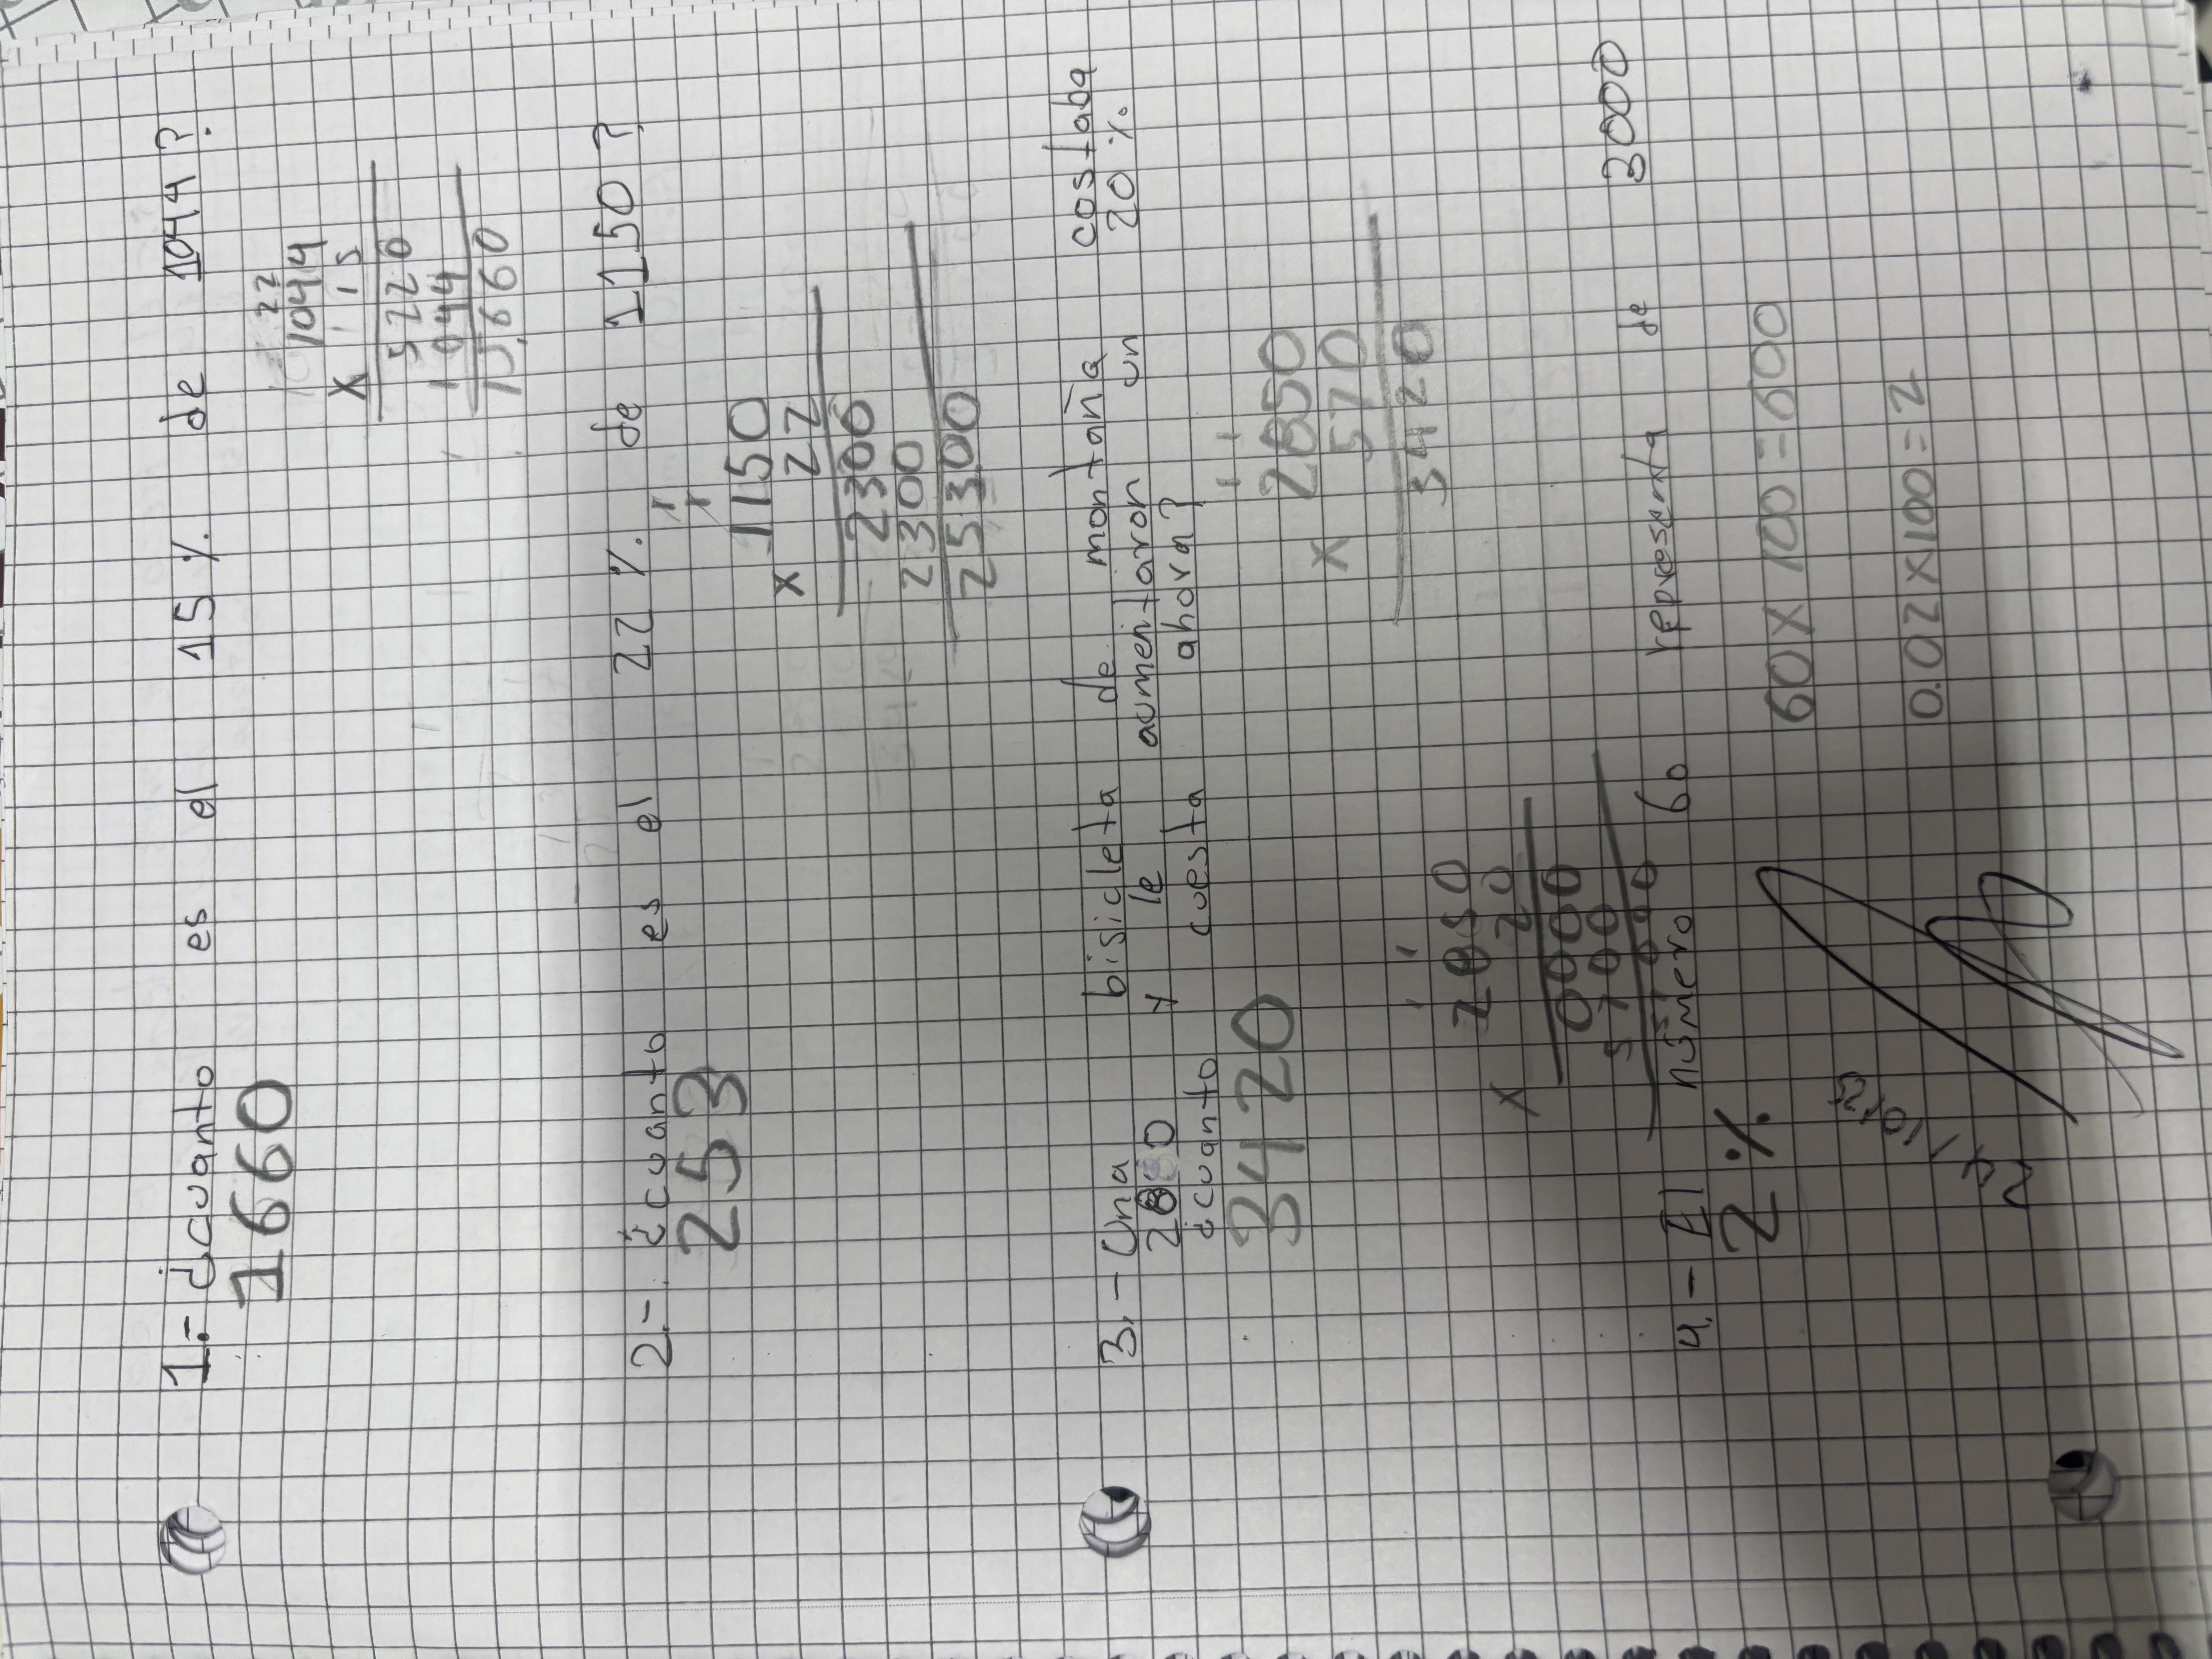 1.- ¿cuanto es el 15 % de 1044 ?
1660
22
1044
x 15
5220
1044
15,660
2.- ¿cuanto es el 22 % de 1150 ?
253
1 1
1150
x 22
2300
2300
25300
3.- Una bisicleta de montaña costaba
2850 y le aumentaron un 20 %
¿cuanto cuesta ahora?
3420
1 1
2850
x 570
3420
1 1
2850
x 20
0000
5700
57000
4.- El número 60 representa de 3000
2 %
60 x 100 = 600
0.02 x 100 = 2